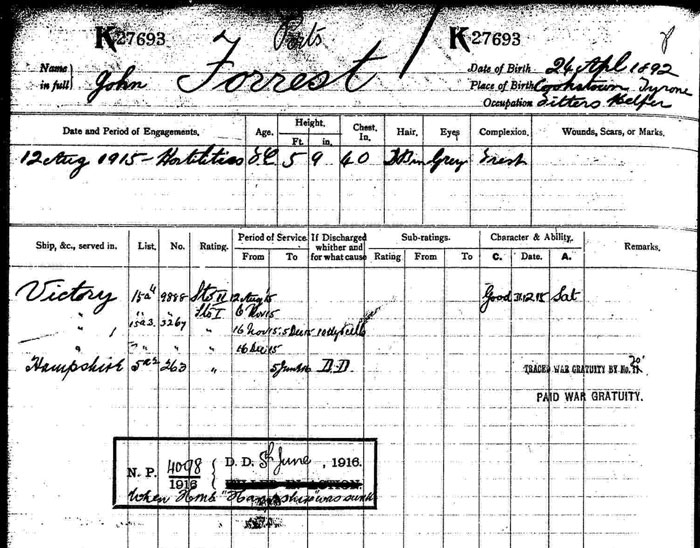 K 27693 Ports K 27693
Name in full John Forrest
Date of Birth 24 Apl 1892
Place of Birth Cookstown Tyrone
Occupation Fitters Helper
Date and Period of Engagements. Age. Height. Ft. in. Chest. In. Hair. Eyes Complexion. Wounds, Scars, or Marks.
12 Aug 1915 - Hostilities 5 9 40 Grey Fresh
Ship, &c., served in. List. No. Rating. Period of Service. From To If Discharged whether and for what cause Sub-ratings. Rating From To Character & Ability. C. Date. A. Remarks.
Victory 9888 Sto II 12 Aug 15 Good 31.12.15 Sat
" Sto I 6 Nov 15
" 15a3 3267 " 16 Nov 15 5 Dec 15 10 dys cells
" " " " 16 Dec 15
Hampshire 5a2 263 " 5 June 16 D.D.
TRACED WAR GRATUITY BY No.
PAID WAR GRATUITY.
N. P. 4098 1916 D. D. 5th June, 1916.
KILLED IN ACTION
When H.M.S. "Hampshire" was sunk